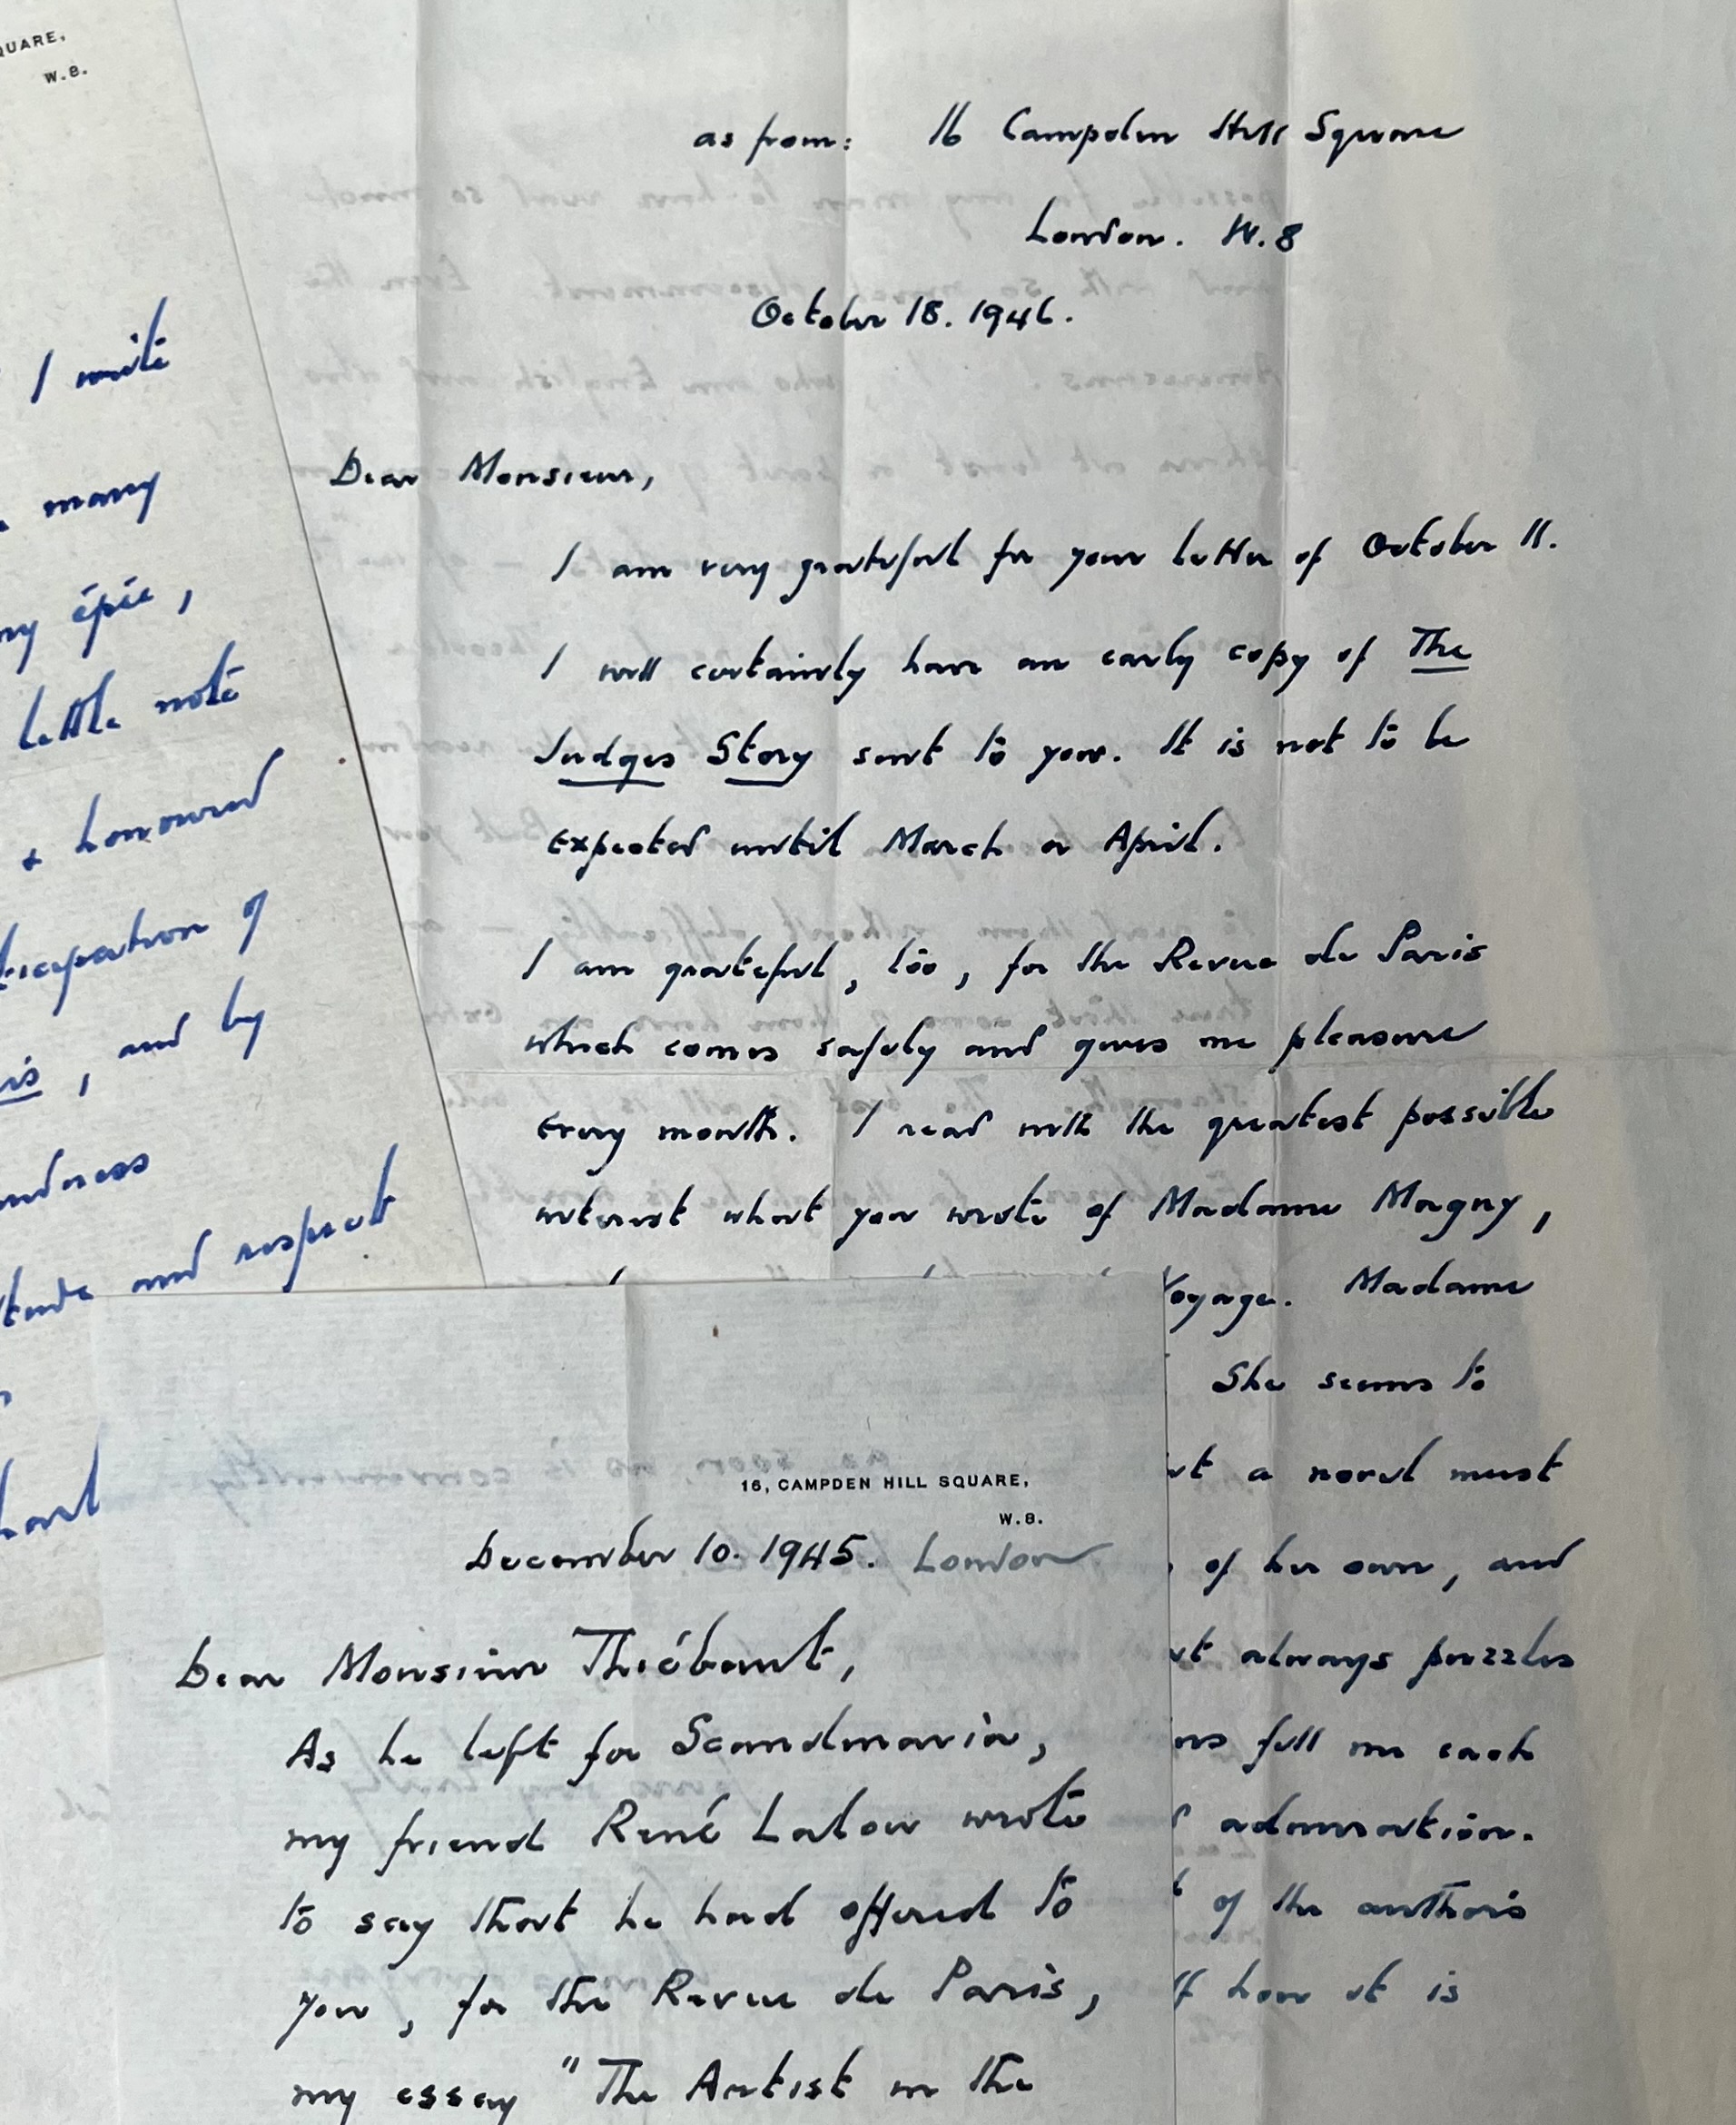 QUARE,
W.8.
I write
many
épée,
little note
& honoured
ticipation of
is, and by
ndness
titude and respect
as from: 16 Campden Hill Square
London. W.8
October 18. 1946.
Dear Monsieur,
I am very grateful for your letter of October 11.
I will certainly have an early copy of The
Judges Story sent to you. It is not to be
expected until March or April.
I am grateful, too, for the Revue de Paris
which comes safely and gives me pleasure
every month. I read with the greatest possible
interest what you wrote of Madame Magny,
Voyage. Madame
She seems to
a novel must
of her own, and
always puzzles
full me each
admiration.
of the authors
how it is
16, CAMPDEN HILL SQUARE,
W.8.
December 10. 1945. London
Dear Monsieur Thiébaut,
As he left for Scandinavia,
my friend René Lalou wrote
to say that he had offered to
you, for the Revue de Paris,
my essay "The Artist in the